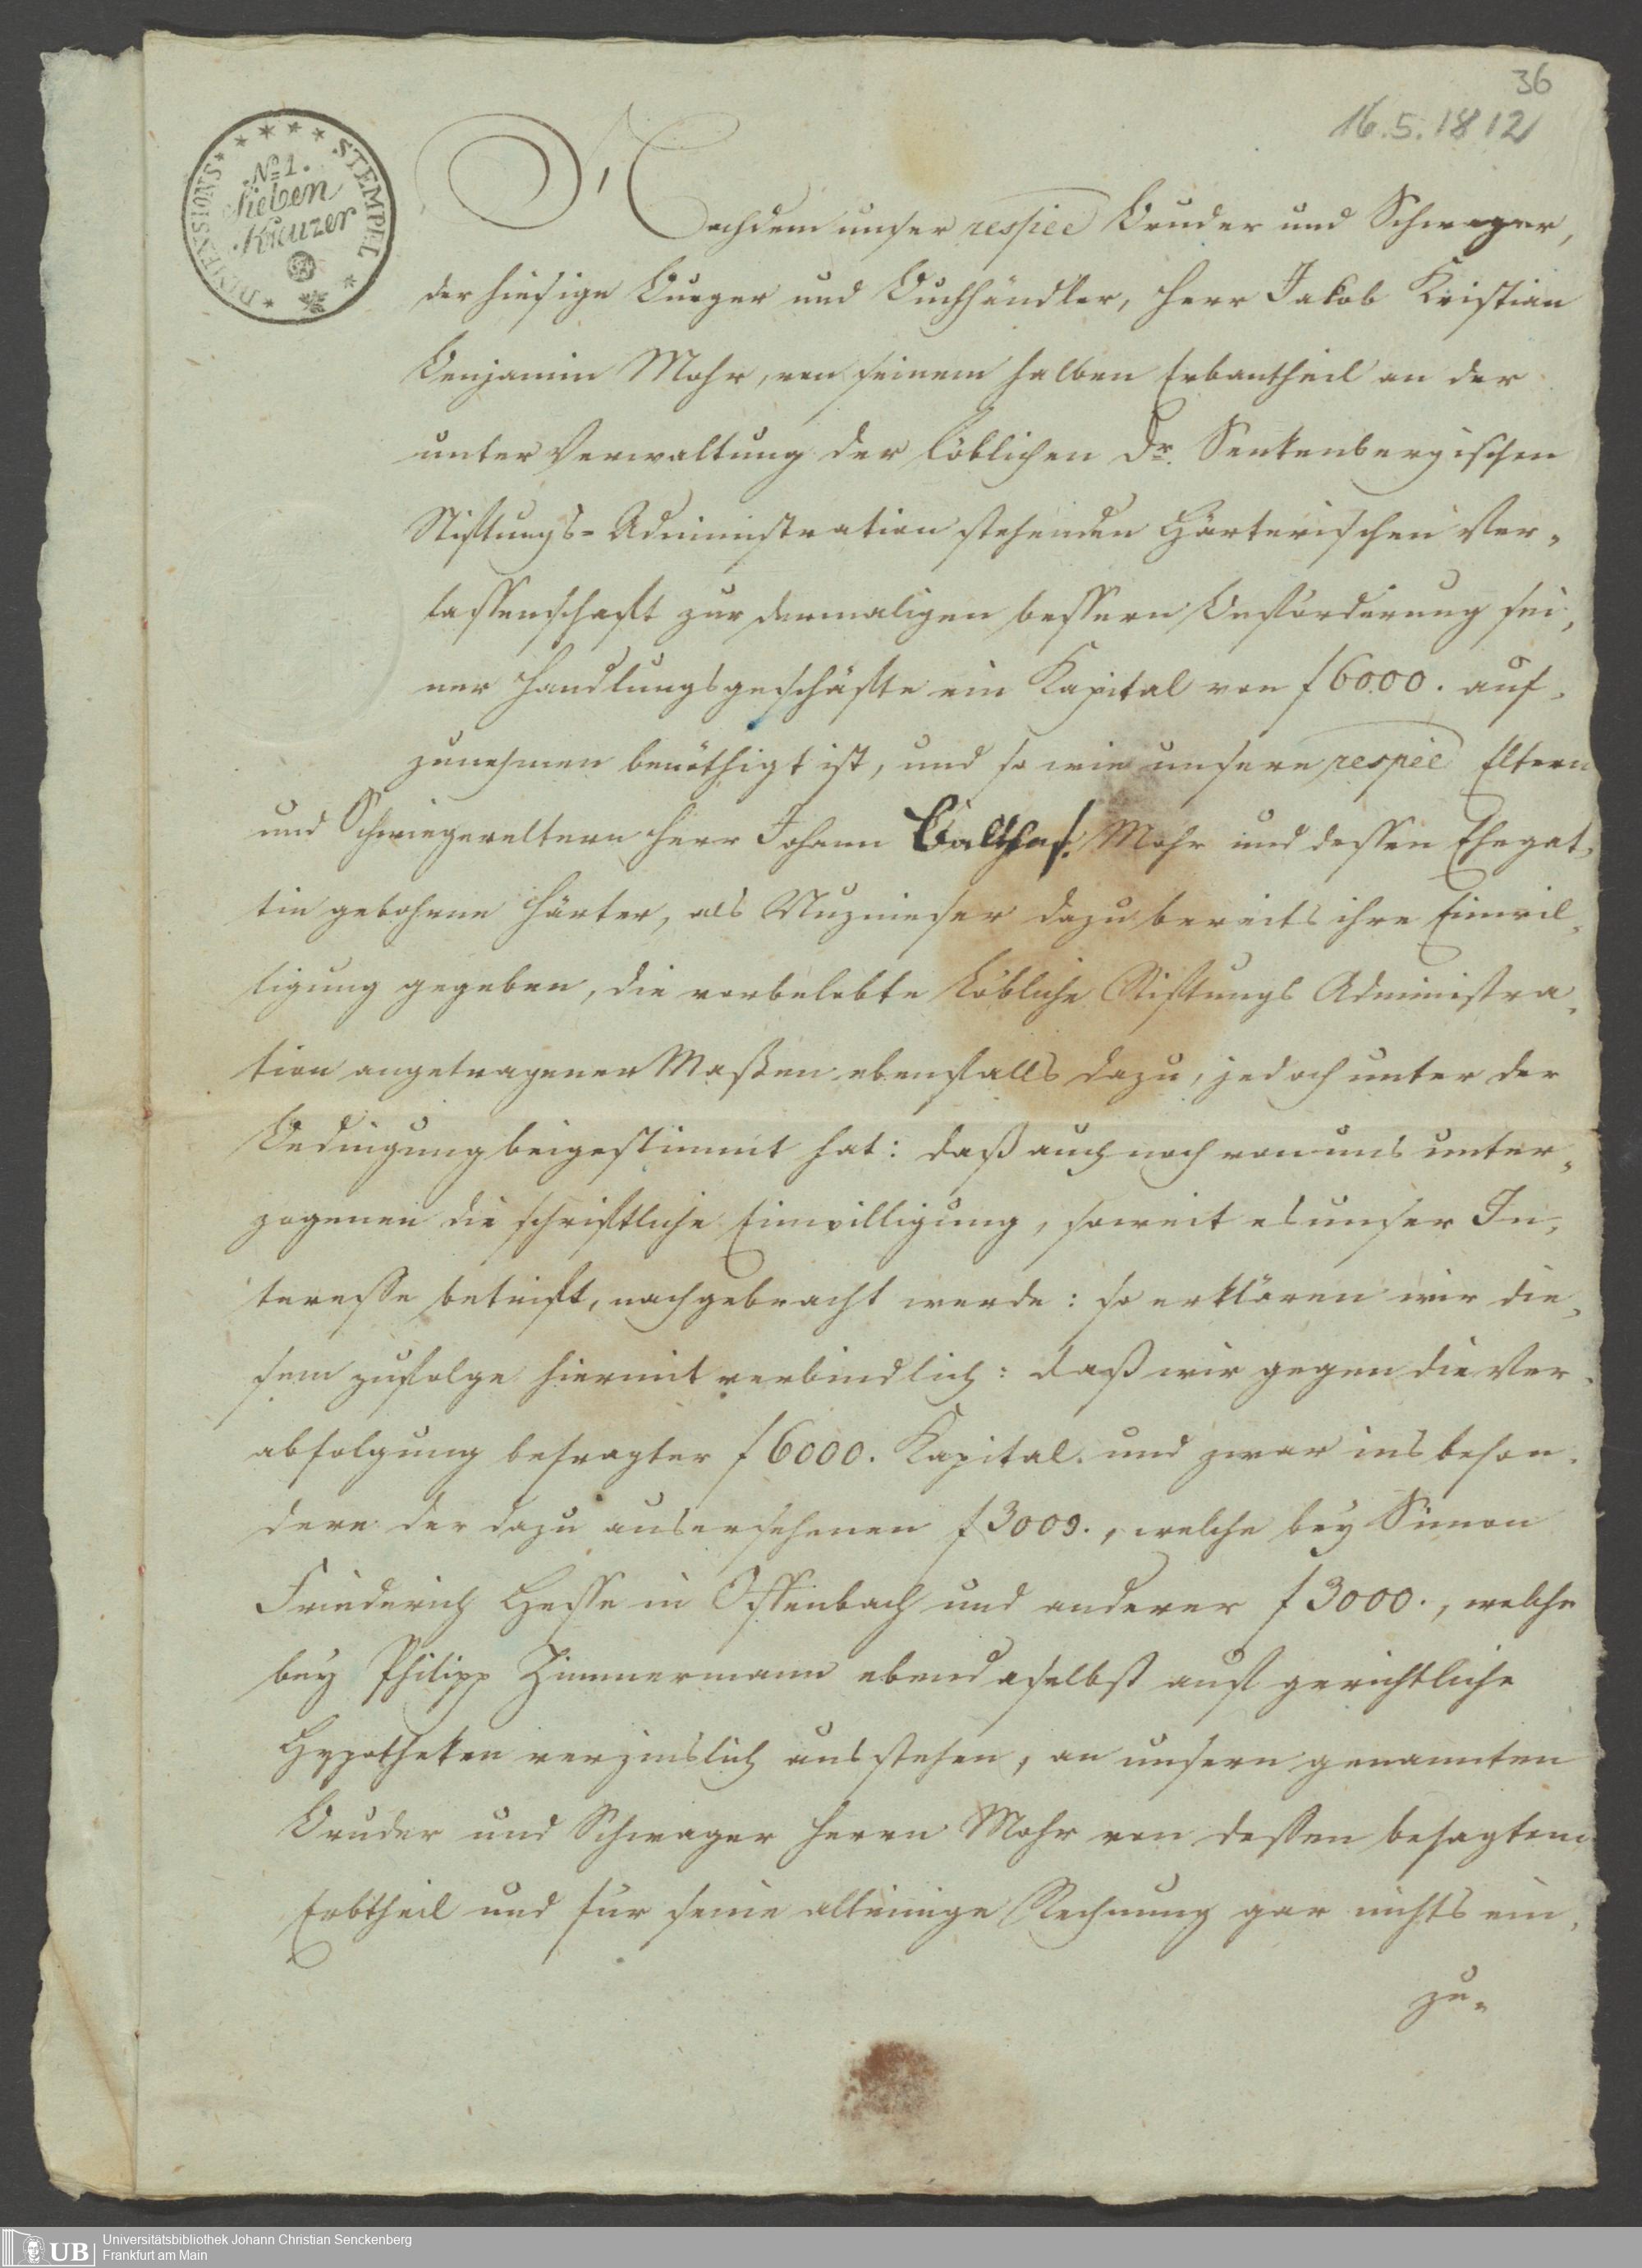 36
16.5.1812
DIMENSIONS STEMPEL
No 1.
Sieben
Kreuzer
Nachdem unser respve Bruder und Schwager,
der hiesige Burger und Buchhändler, Herr Jakob Kristian
Benjamin Mohr, von seinem halben Erbantheil an der
unter Verwaltung der löblichen Dr. Senkenbergischen
Stiftungs-Administration stehenden Härterischen Ver-
lassenschaft zur dermaligen bessern Beförderung sei-
ner Handlungsgeschäfte ein Kapital von f 6000. auf-
zunehmen benöthigt ist, und so wie unsere respve Eltern
und Schwiegereltern Herr Johann Balthas. Mohr und dessen Ehegat-
tin gebohrne Härter, als Nuznieser dazu bereits ihre Einwil-
ligung gegeben, die vorbelobte Löbliche Stiftungs Administra-
tion angetragener Maßen ebenfalls dazu, jedoch unter der
Bedingung beigestimmt hat: daß auch noch von uns unter-
zogenen die schriftliche Einwilligung, soweit es unser In-
teresse betrift, nachgebracht werde: so erklären wir die-
sem zufolge hiermit verbindlich: daß wir gegen die Ver-
abfolgung besragter f 6000. Kapital. und zwar insbeson-
dere der dazu ausersehenen f 3000., welche bey Simon
Friederich Hesse in Offenbach und anderer f 3000., welche
bey Philipp Zimmermann ebendaselbst auf gerichtliche
Hypotheken verzinslich ausstehen, an unsern genannten
Bruder und Schwager Herrn Mohr von dessen besagtem
Erbtheil und für seine alleinige Rechnung gar nichts ein-
zu-
UB
Universitätsbibliothek Johann Christian Senckenberg
Frankfurt am Main